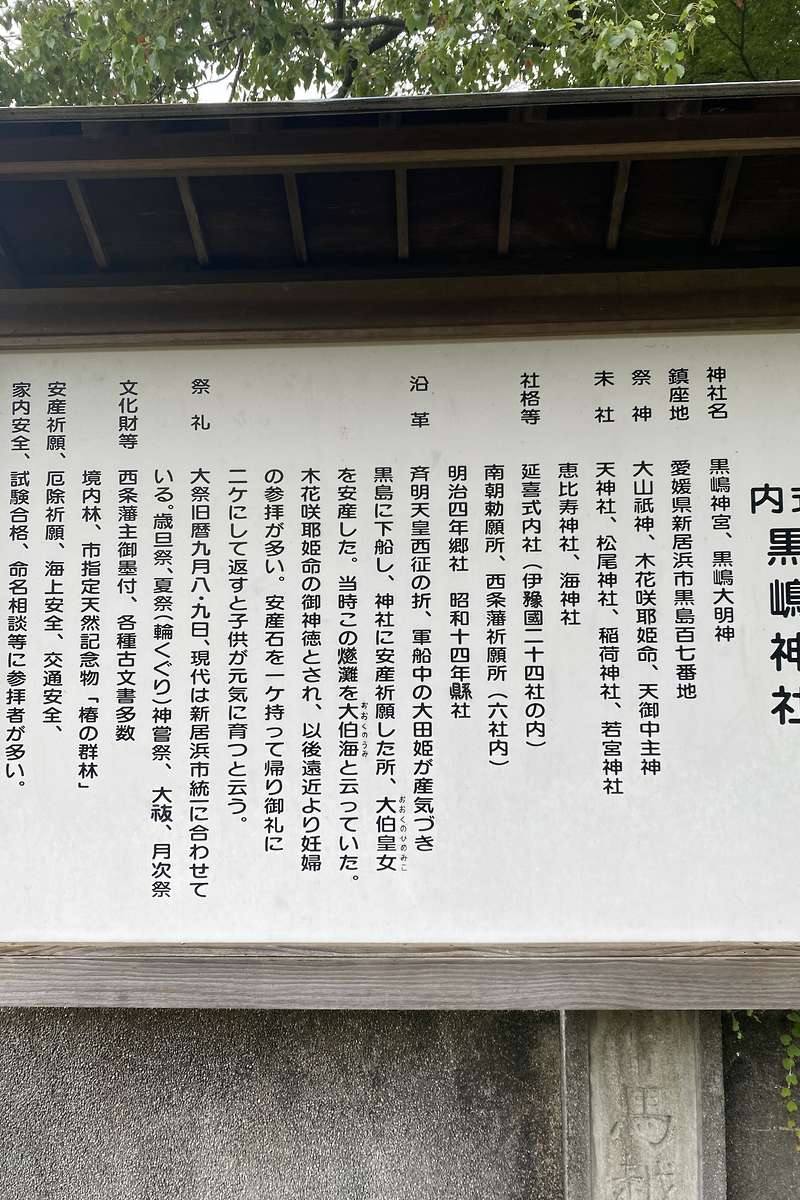 式内
黒嶋神社
神社名 黒嶋神宮、黒嶋大明神
鎮座地 愛媛県新居浜市黒島百七番地
祭神 大山祇神、木花咲耶姫命、天御中主神
末社 天神社、松尾神社、稲荷神社、若宮神社
恵比寿神社、海神社
社格等 延喜式内社(伊豫國二十四社の内)
南朝勅願所、西条藩祈願所(六社内)
明治四年郷社 昭和十四年縣社
沿革 斉明天皇西征の折、軍船中の大田姫が産気づき
黒島に下船し、神社に安産祈願した所、大伯皇女
おおくのひめみこ
を安産した。当時この燧灘を大伯海と云っていた。
おおくのうみ
木花咲耶姫命の御神徳とされ、以後遠近より妊婦
の参拝が多い。安産石を一ケ持って帰り御礼に
二ケにして返すと子供が元気に育つと云う。
祭礼 大祭旧暦九月八・九日、現代は新居浜市統一に合わせて
いる。歳旦祭、夏祭(輪くぐり)神嘗祭、大祓、月次祭
文化財等 西条藩主御墨付、各種古文書多数
境内林、市指定天然記念物「椿の群林」
安産祈願、厄除祈願、海上安全、交通安全、
家内安全、試験合格、命名相談等に参拝者が多い。
馬越